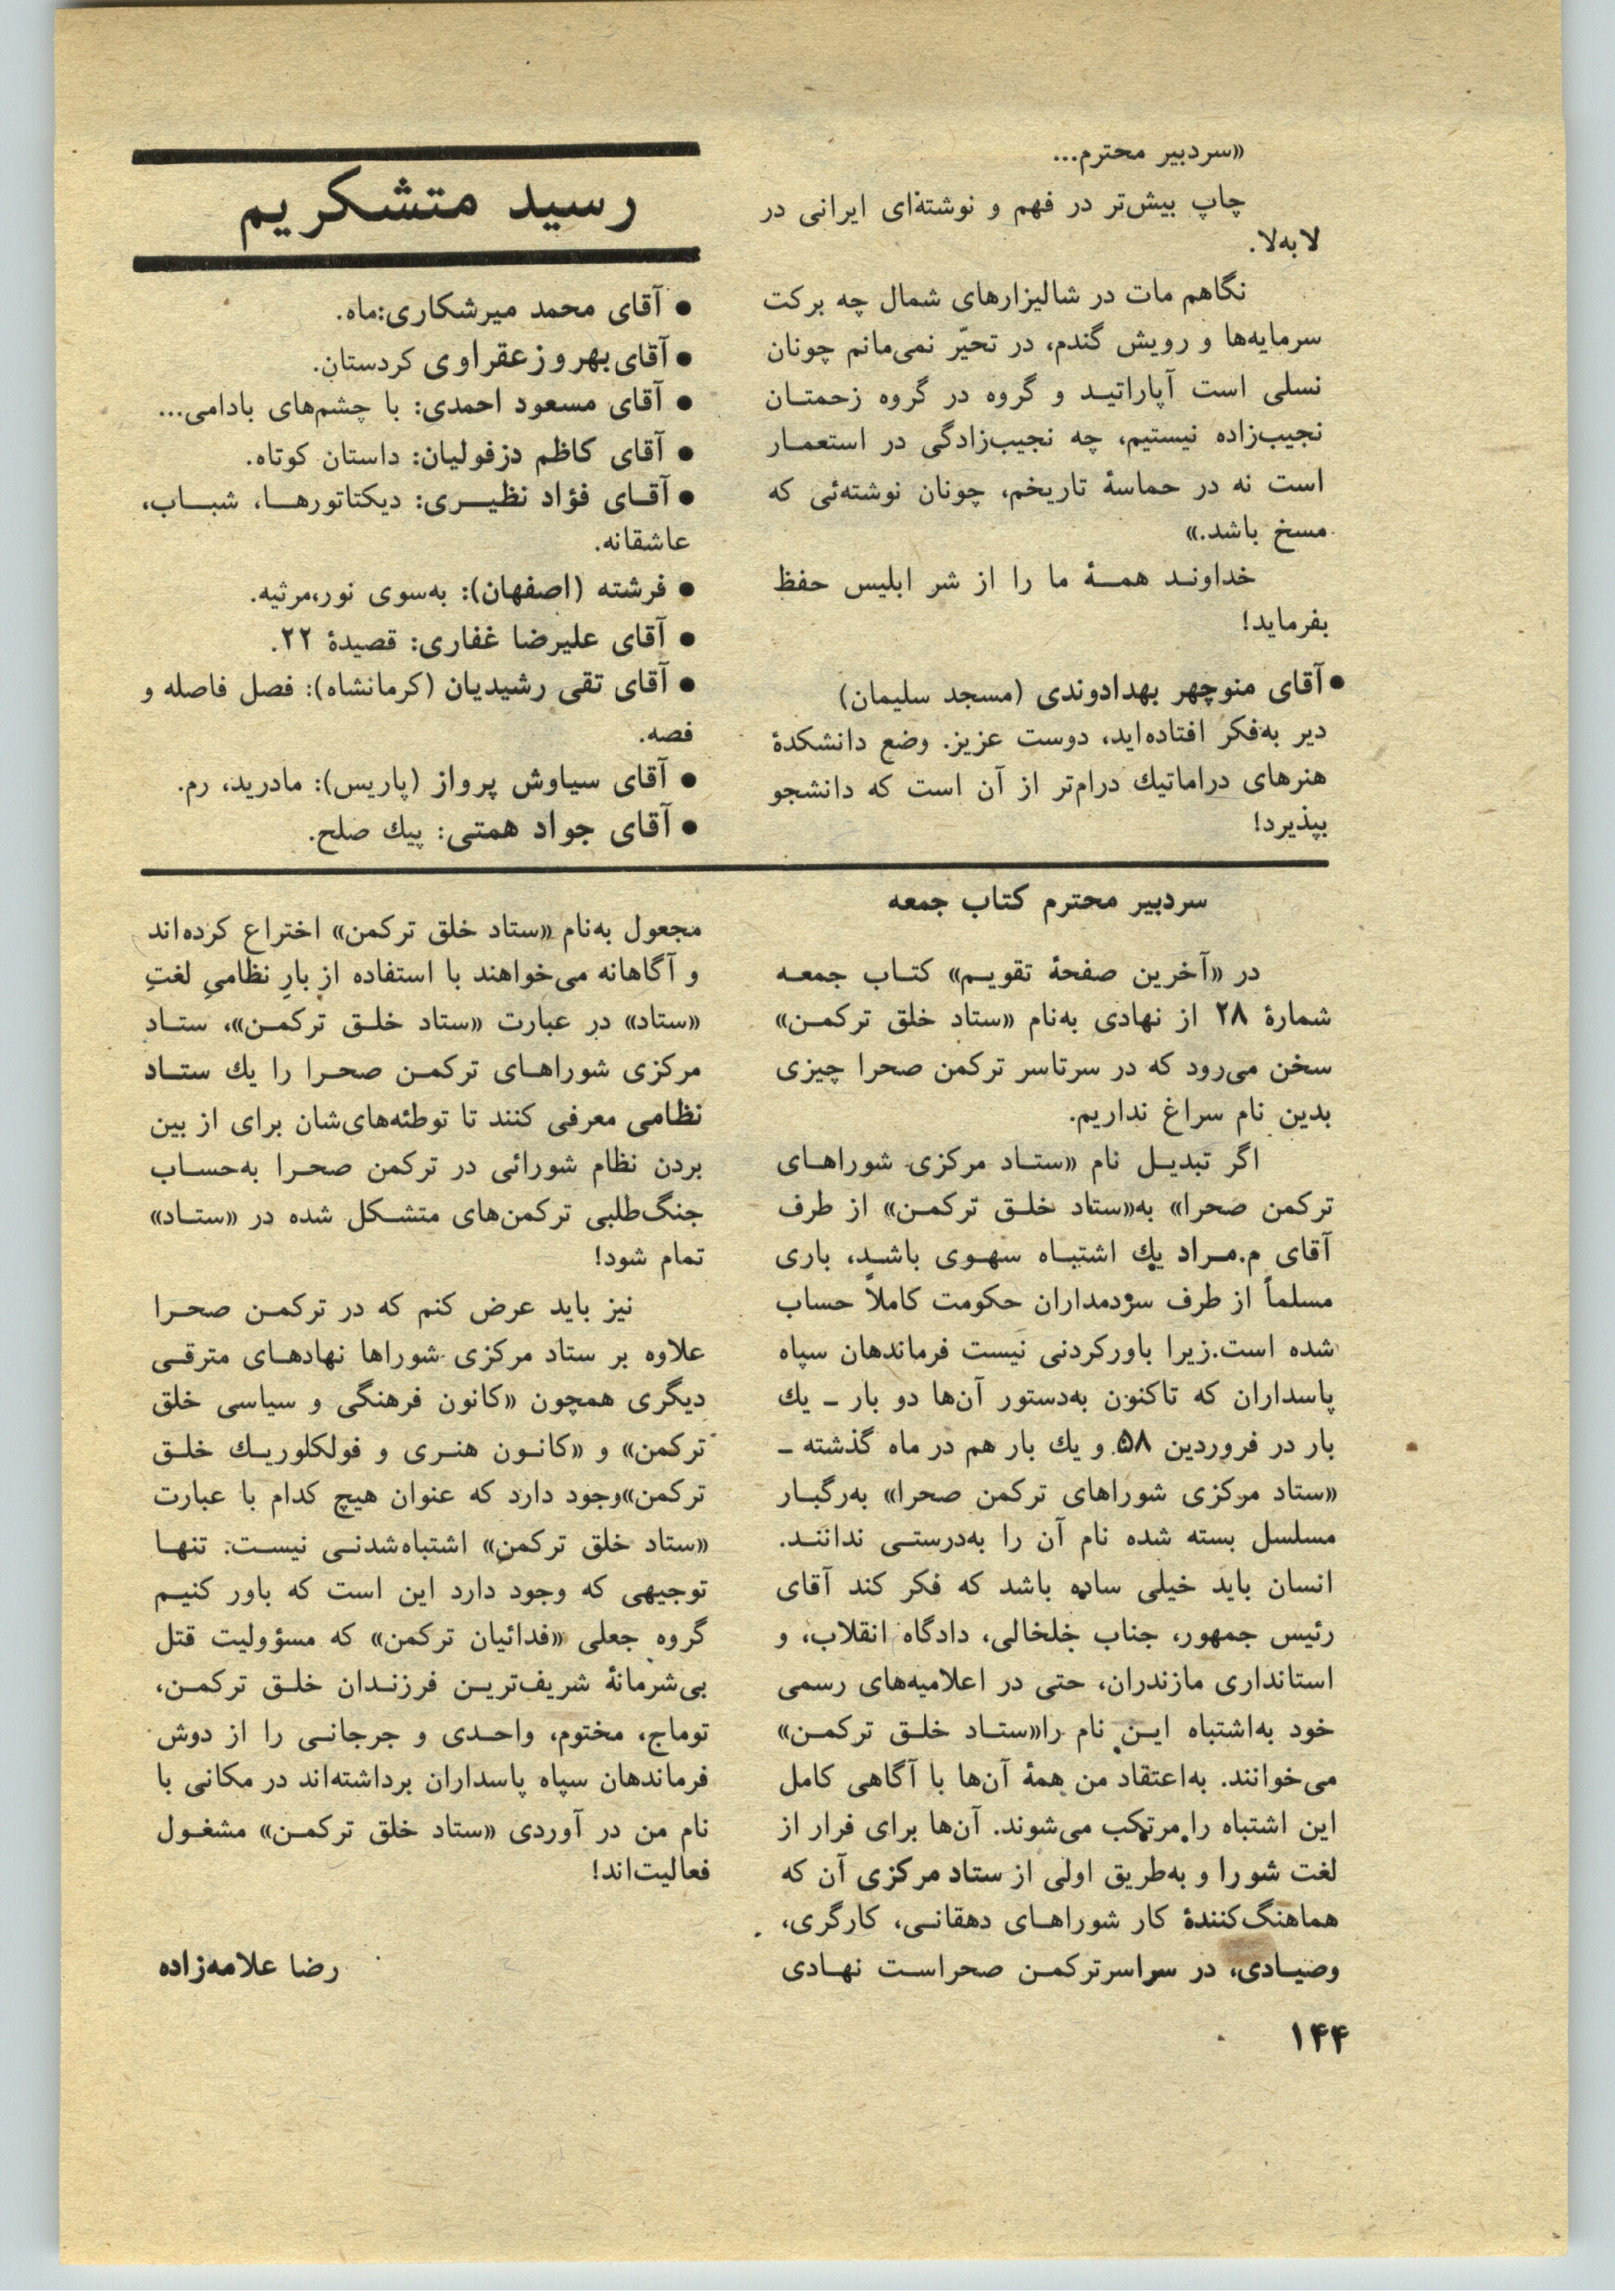 «سردبیر محترم...
چاپ بیش‌تر در فهم و نوشته‌ای ایرانی در
لابه‌لا.
نگاهم مات در شالیزارهای شمال چه برکت
سرمایه‌ها و رویش گندم، در تحیّر نمی‌مانم چونان
نسلی است آپاراتیـد و گروه در گروه زحمتـان
نجیب‌زاده نیستیم، چه نجیب‌زادگی در استعمـار
است نه در حماسهٔ تاریخم، چونان نوشته‌ئی که
مسخ باشد.»
خداونـد همـهٔ ما را از شر ابلیس حفظ
بفرماید!
● آقای منوچهر بهدادوندی (مسجد سلیمان)
دیر به‌فکر افتاده‌اید، دوست عزیز. وضع دانشکدهٔ
هنرهای دراماتیك درام‌تر از آن است که دانشجو
بپذیرد!
رسید متشکریم
● آقای محمد میرشکاری:ماه.
● آقای بهروز عقراوی کردستان.
● آقای مسعود احمدی: با چشم‌های بادامی...
● آقای کاظم دزفولیان: داستان کوتاه.
● آقـای فؤاد نظیـری: دیکتاتورهـا، شبـاب،
عاشقانه.
● فرشته (اصفهان): به‌سوی نور،مرثیه.
● آقای علیرضا غفاری: قصیدهٔ ۲۲.
● آقای تقی رشیدیان (کرمانشاه): فصل فاصله و
فصه.
● آقای سیاوش پرواز (پاریس): مادرید، رم.
● آقای جواد همتی: پیك صلح.
سردبیر محترم کتاب جمعه
در «آخرین صفحهٔ تقویـم» کتـاب جمعـه
شمارهٔ ۲۸ از نهادی به‌نام «ستاد خلق ترکمـن»
سخن می‌رود که در سرتاسر ترکمن صحرا چیزی
بدین نام سراغ نداریم.
اگر تبدیـل نام «ستـاد مرکزی شوراهـای
ترکمن صحرا» به«ستاد خلـق ترکمـن» از طرف
آقای م.مـراد یك اشتبـاه سهـوی باشـد، باری
مسلماً از طرف سردمداران حکومت کاملاً حساب
شده است.زیرا باورکردنی نیست فرماندهان سپاه
پاسداران که تاکنون به‌دستور آن‌ها دو بار ــ یك
بار در فروردین ۵۸ و یك بار هم در ماه گذشته ــ
«ستاد مرکزی شوراهای ترکمن صحرا» به‌رگبـار
مسلسل بسته شده نام آن را به‌درستـی نداننـد.
انسان باید خیلی ساده باشد که فکر کند آقای
رئیس جمهور، جناب خلخالی، دادگاه انقلاب، و
استانداری مازندران، حتی در اعلامیه‌های رسمی
خود به‌اشتباه ایـن نام را«ستـاد خلـق ترکمـن»
می‌خوانند. به‌اعتقاد من همهٔ آن‌ها با آگاهی کامل
این اشتباه را مرتکب می‌شوند. آن‌ها برای فرار از
لغت شورا و به‌طریق اولی از ستاد مرکزی آن که
هماهنگ‌کنندهٔ کار شوراهـای دهقانـی، کارگری،
وصیـادی، در سراسرترکمـن صحراسـت نهـادی
مجعول به‌نام «ستاد خلق ترکمن» اختراع کرده‌اند
و آگاهانه می‌خواهند با استفاده از بارِ نظامیِ لغتِ
«ستاد» در عبارت «ستاد خلـق ترکمـن»، ستـاد
مرکزی شوراهـای ترکمـن صحـرا را یك ستـاد
نظامی معرفی کنند تا توطئه‌های‌شان برای از بین
بردن نظام شورائی در ترکمن صحـرا به‌حسـاب
جنگ‌طلبی ترکمن‌های متشـکل شده در «ستـاد»
تمام شود!
نیز باید عرض کنم که در ترکمـن صحـرا
علاوه بر ستاد مرکزی شوراها نهادهـای مترقـی
دیگری همچون «کانون فرهنگی و سیاسی خلق
ترکمن» و «کانـون هنـری و فولکلوریـك خلـق
ترکمن»وجود دارد که عنوان هیچ کدام با عبارت
«ستاد خلق ترکمن» اشتباه‌شدنـی نیسـت. تنهـا
توجیهی که وجود دارد این است که باور کنیـم
گروه جعلی «فدائیان ترکمن» که مسؤولیت قتل
بی‌شرمانهٔ شریف‌تریـن فرزنـدان خلـق ترکمـن،
توماج، مختوم، واحـدی و جرجانـی را از دوش
فرماندهان سپاه پاسداران برداشته‌اند در مکانی با
نام من در آوردی «ستاد خلق ترکمـن» مشغـول
فعالیت‌اند!
رضا علامه‌زاده
۱۴۴